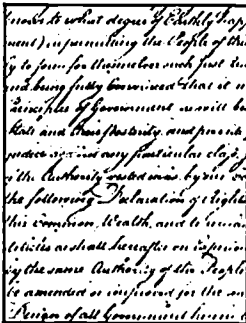 knows to what degree of Earthly happ
ment) in permitting the People of this
ly to form for themselves such just
and being fully convinced that it
Principles of Government as will be
State and their Posterity, and provid
prejudice against any particular class,
the Authority vested in us by our
the following Declaration of Rights
this Common Wealth, and to remain
articles as shall hereafter on experience
by the same Authority of the People
be amended or improved for the
Reign of all Government herein